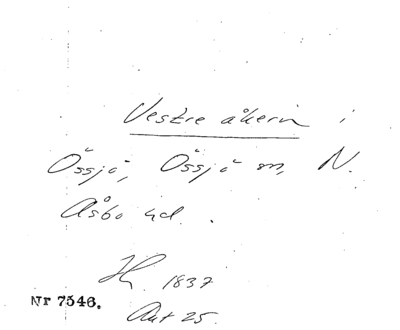 Vestre åkern i
Össjö, Össjö sn, N.
Åsbo hd.
H. 1837
Akt 25.
Nr 7546.